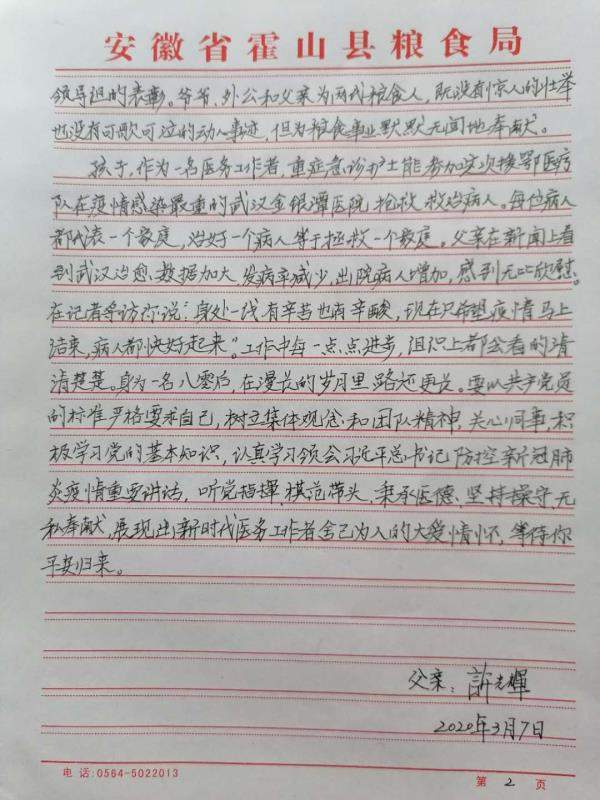 安徽省霍山县粮食局
领导组的表彰。爷爷,外公和父亲为两代粮食人,既没有惊人的壮举
也没有可歌可泣的动人事迹,但为粮食事业默默无闻地奉献。
孩子,作为一名医务工作者,重症急诊护士能参加这次援鄂医疗
队在疫情感染最重的武汉金银潭医院抢救救治病人。每位病人
都代表一个家庭,治好一个病人等于拯救一个家庭。父亲在新闻上看
到武汉治愈数据加大,发病率减少,出院病人增加,感到无比欣慰。
在记者采访你说:"身处一线有辛苦也有辛酸,现在只希望疫情马上
结束,病人都快好起来"。工作中每一点点进步,组织上都会看的清
清楚楚。身为一名八零后,在漫长的岁月里路还更长。要以共产党员
的标准严格要求自己,树立集体观念和团队精神,关心同事,积
极学习党的基本知识,认真学习领会习近平总书记防控新冠肺
炎疫情重要讲话,听党指挥、模范带头,秉承医德、坚持操守、无
私奉献,展现出新时代医务工作者舍己为人的大爱情怀,等待你
平安归来。
父亲:許光輝
2020年3月7日
电话:0564-5022013
第 2 页